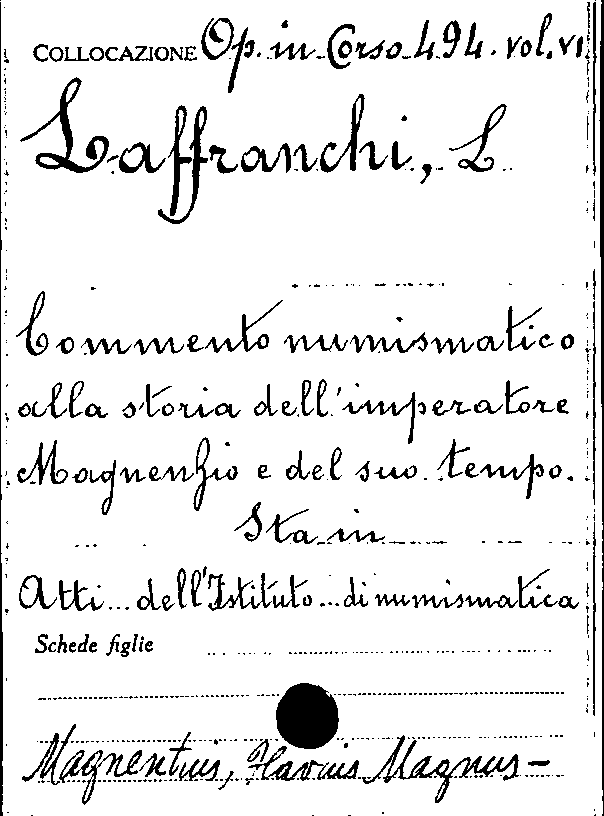 COLLOCAZIONE Op. in Corso 494. vol. VI
Laffranchi, L
Commento numismatico
alla storia dell'imperatore
Magnenzio e del suo tempo.
Sta in
Atti... dell'Istituto... di numismatica
Schede figlie
Magnentius, Flavius Magnus -